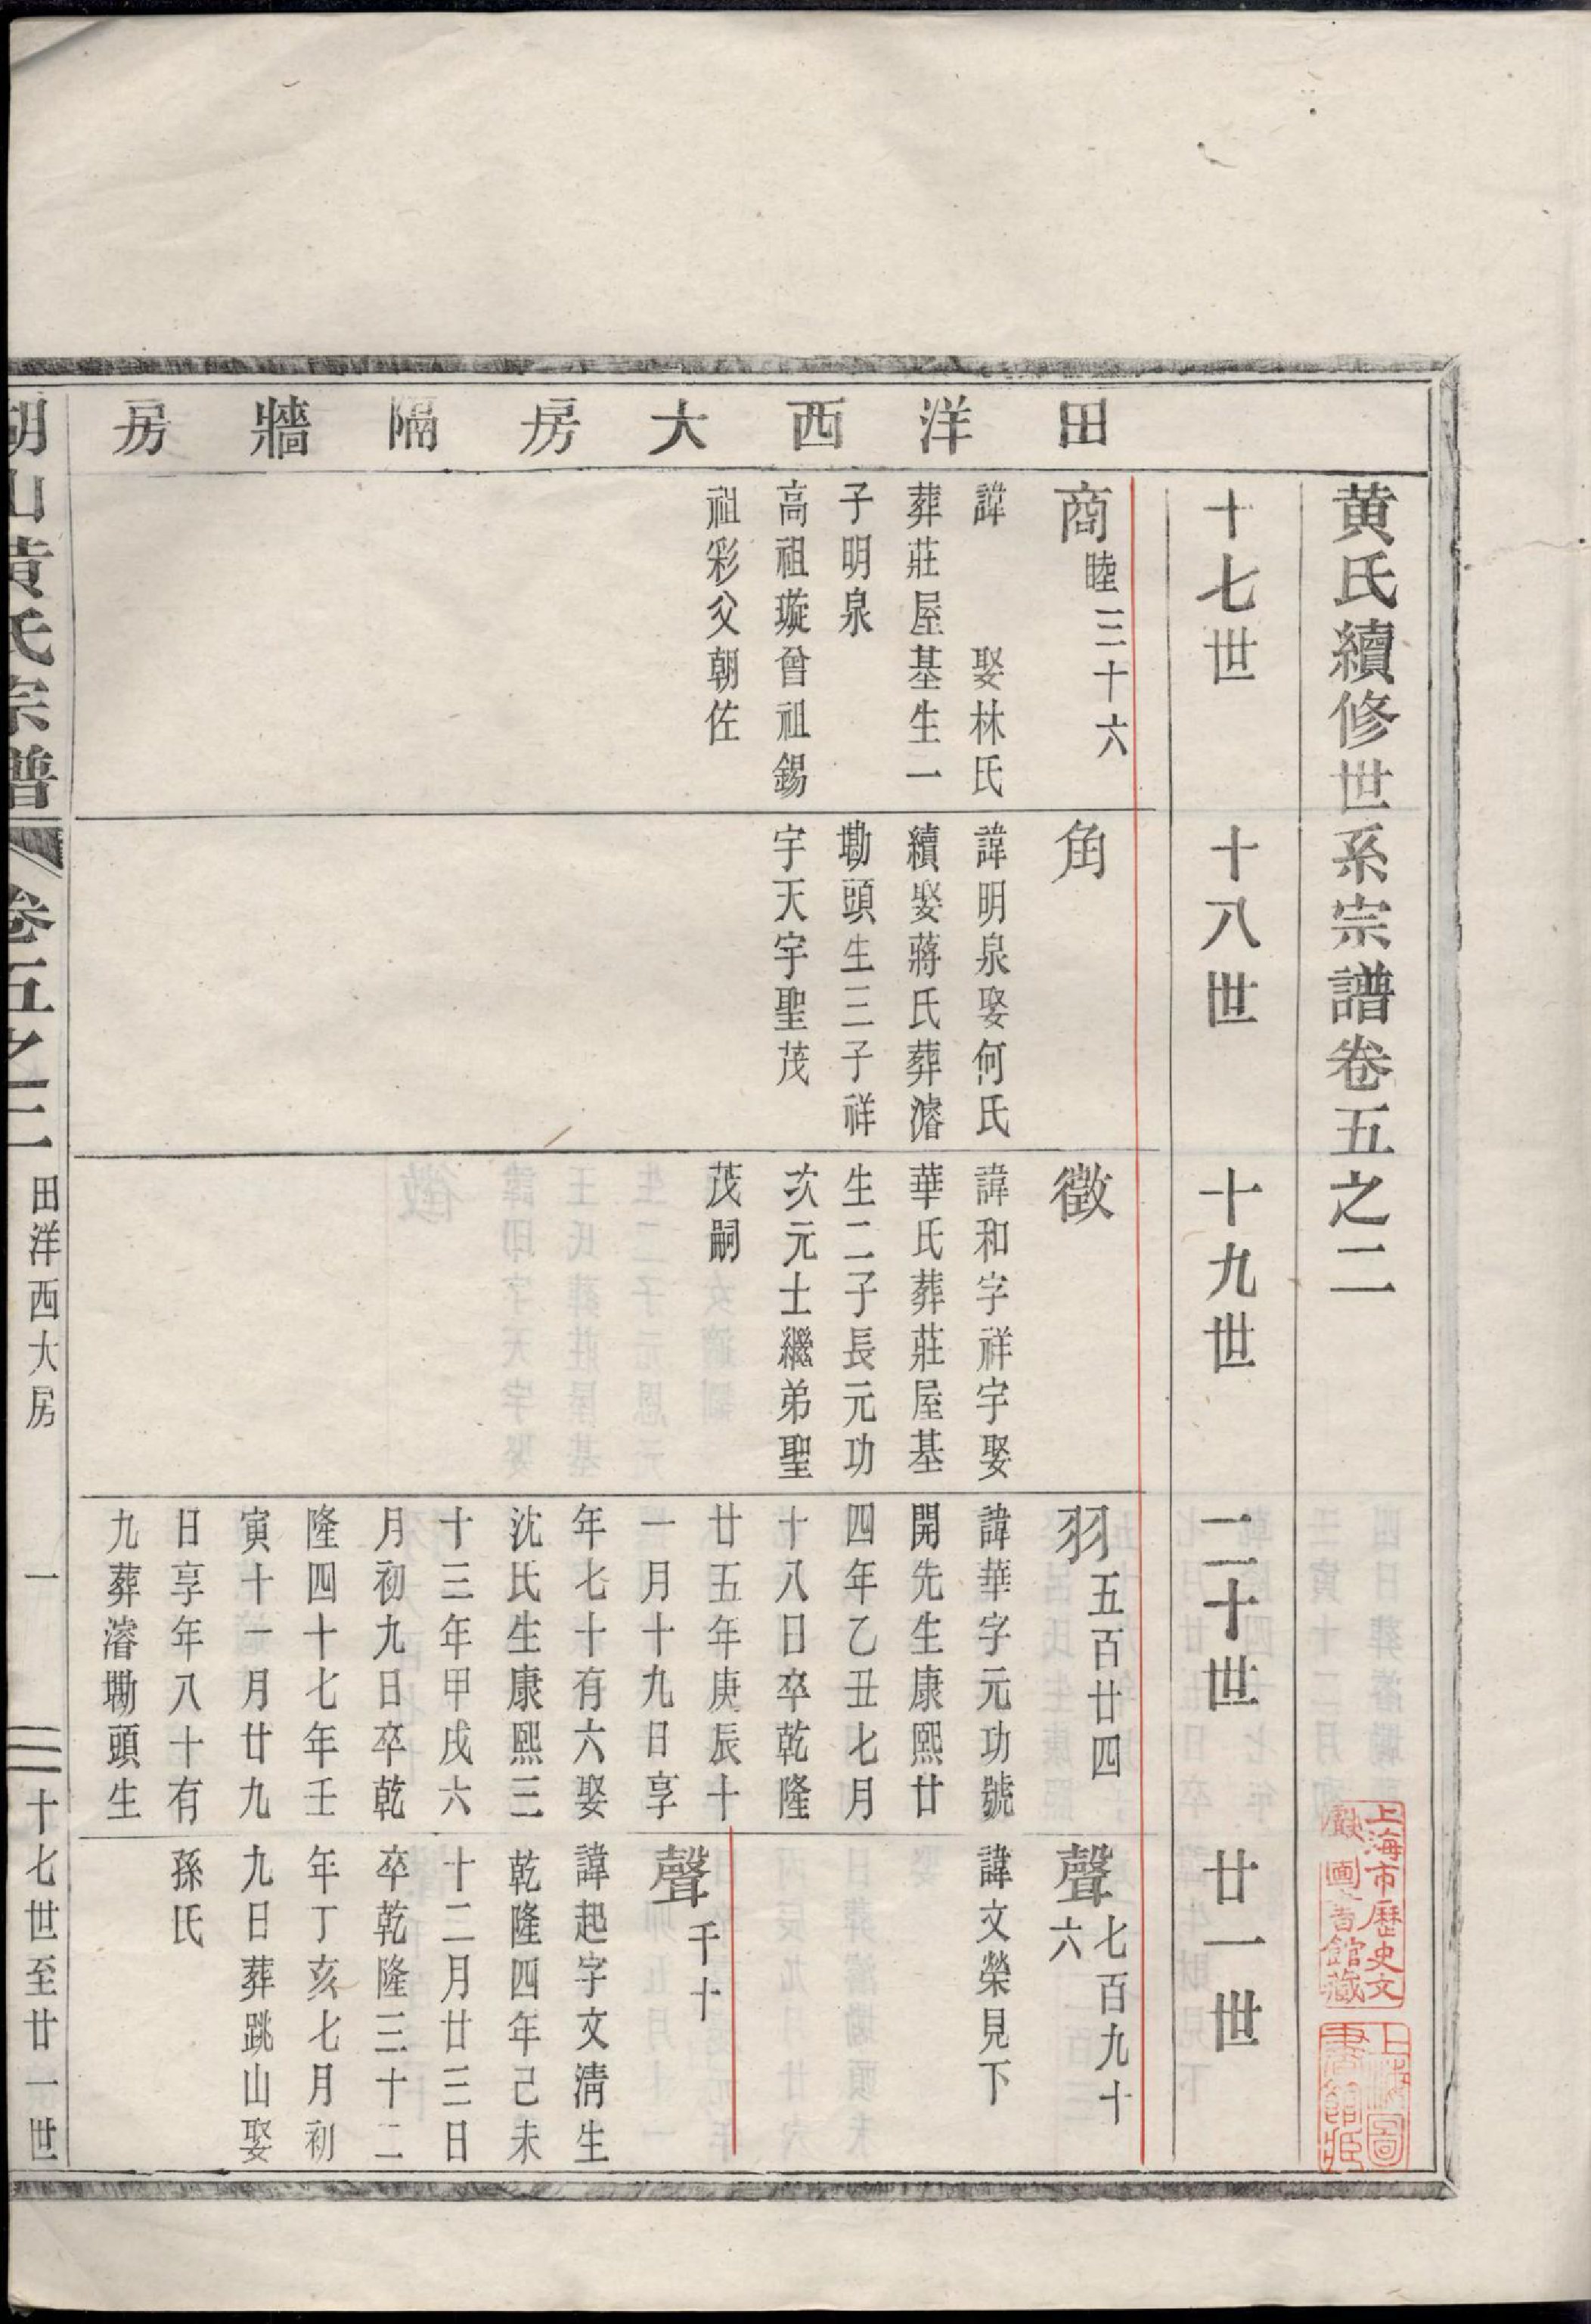 黄氏續修世系宗譜卷五之二
十七世
十八世
十九世
二十世
廿一世
田洋西大房隔牆房
商
睦三十六
諱　娶林氏
葬莊屋基生一
子明泉
高祖璇曾祖錫
祖彩父朝佐
角
諱明泉娶何氏
續娶蔣氏葬濬
墈頭生三子祥
宇天宇聖茂
徵
諱和字祥宇娶
華氏葬莊屋基
生二子長元功
次元士繼弟聖
茂嗣
羽
五百廿四
諱華字元功號
開先生康熙廿
四年乙丑七月
十八日卒乾隆
廿五年庚辰十
一月十九日享
年七十有六娶
沈氏生康熙三
十三年甲戌六
月初九日卒乾
隆四十七年壬
寅十一月廿九
日享年八十有
九葬濬墈頭生
聲
七百九十
六
諱文榮見下
聲
千十
諱起字文淸生
乾隆四年己未
十二月廿三日
卒乾隆三十二
年丁亥七月初
九日葬跳山娶
孫氏
湖山黄氏宗譜
卷五之二
田洋西大房
一
十七世至廿一世
上海市歷史文
獻圖書館藏
上海圖
書館藏